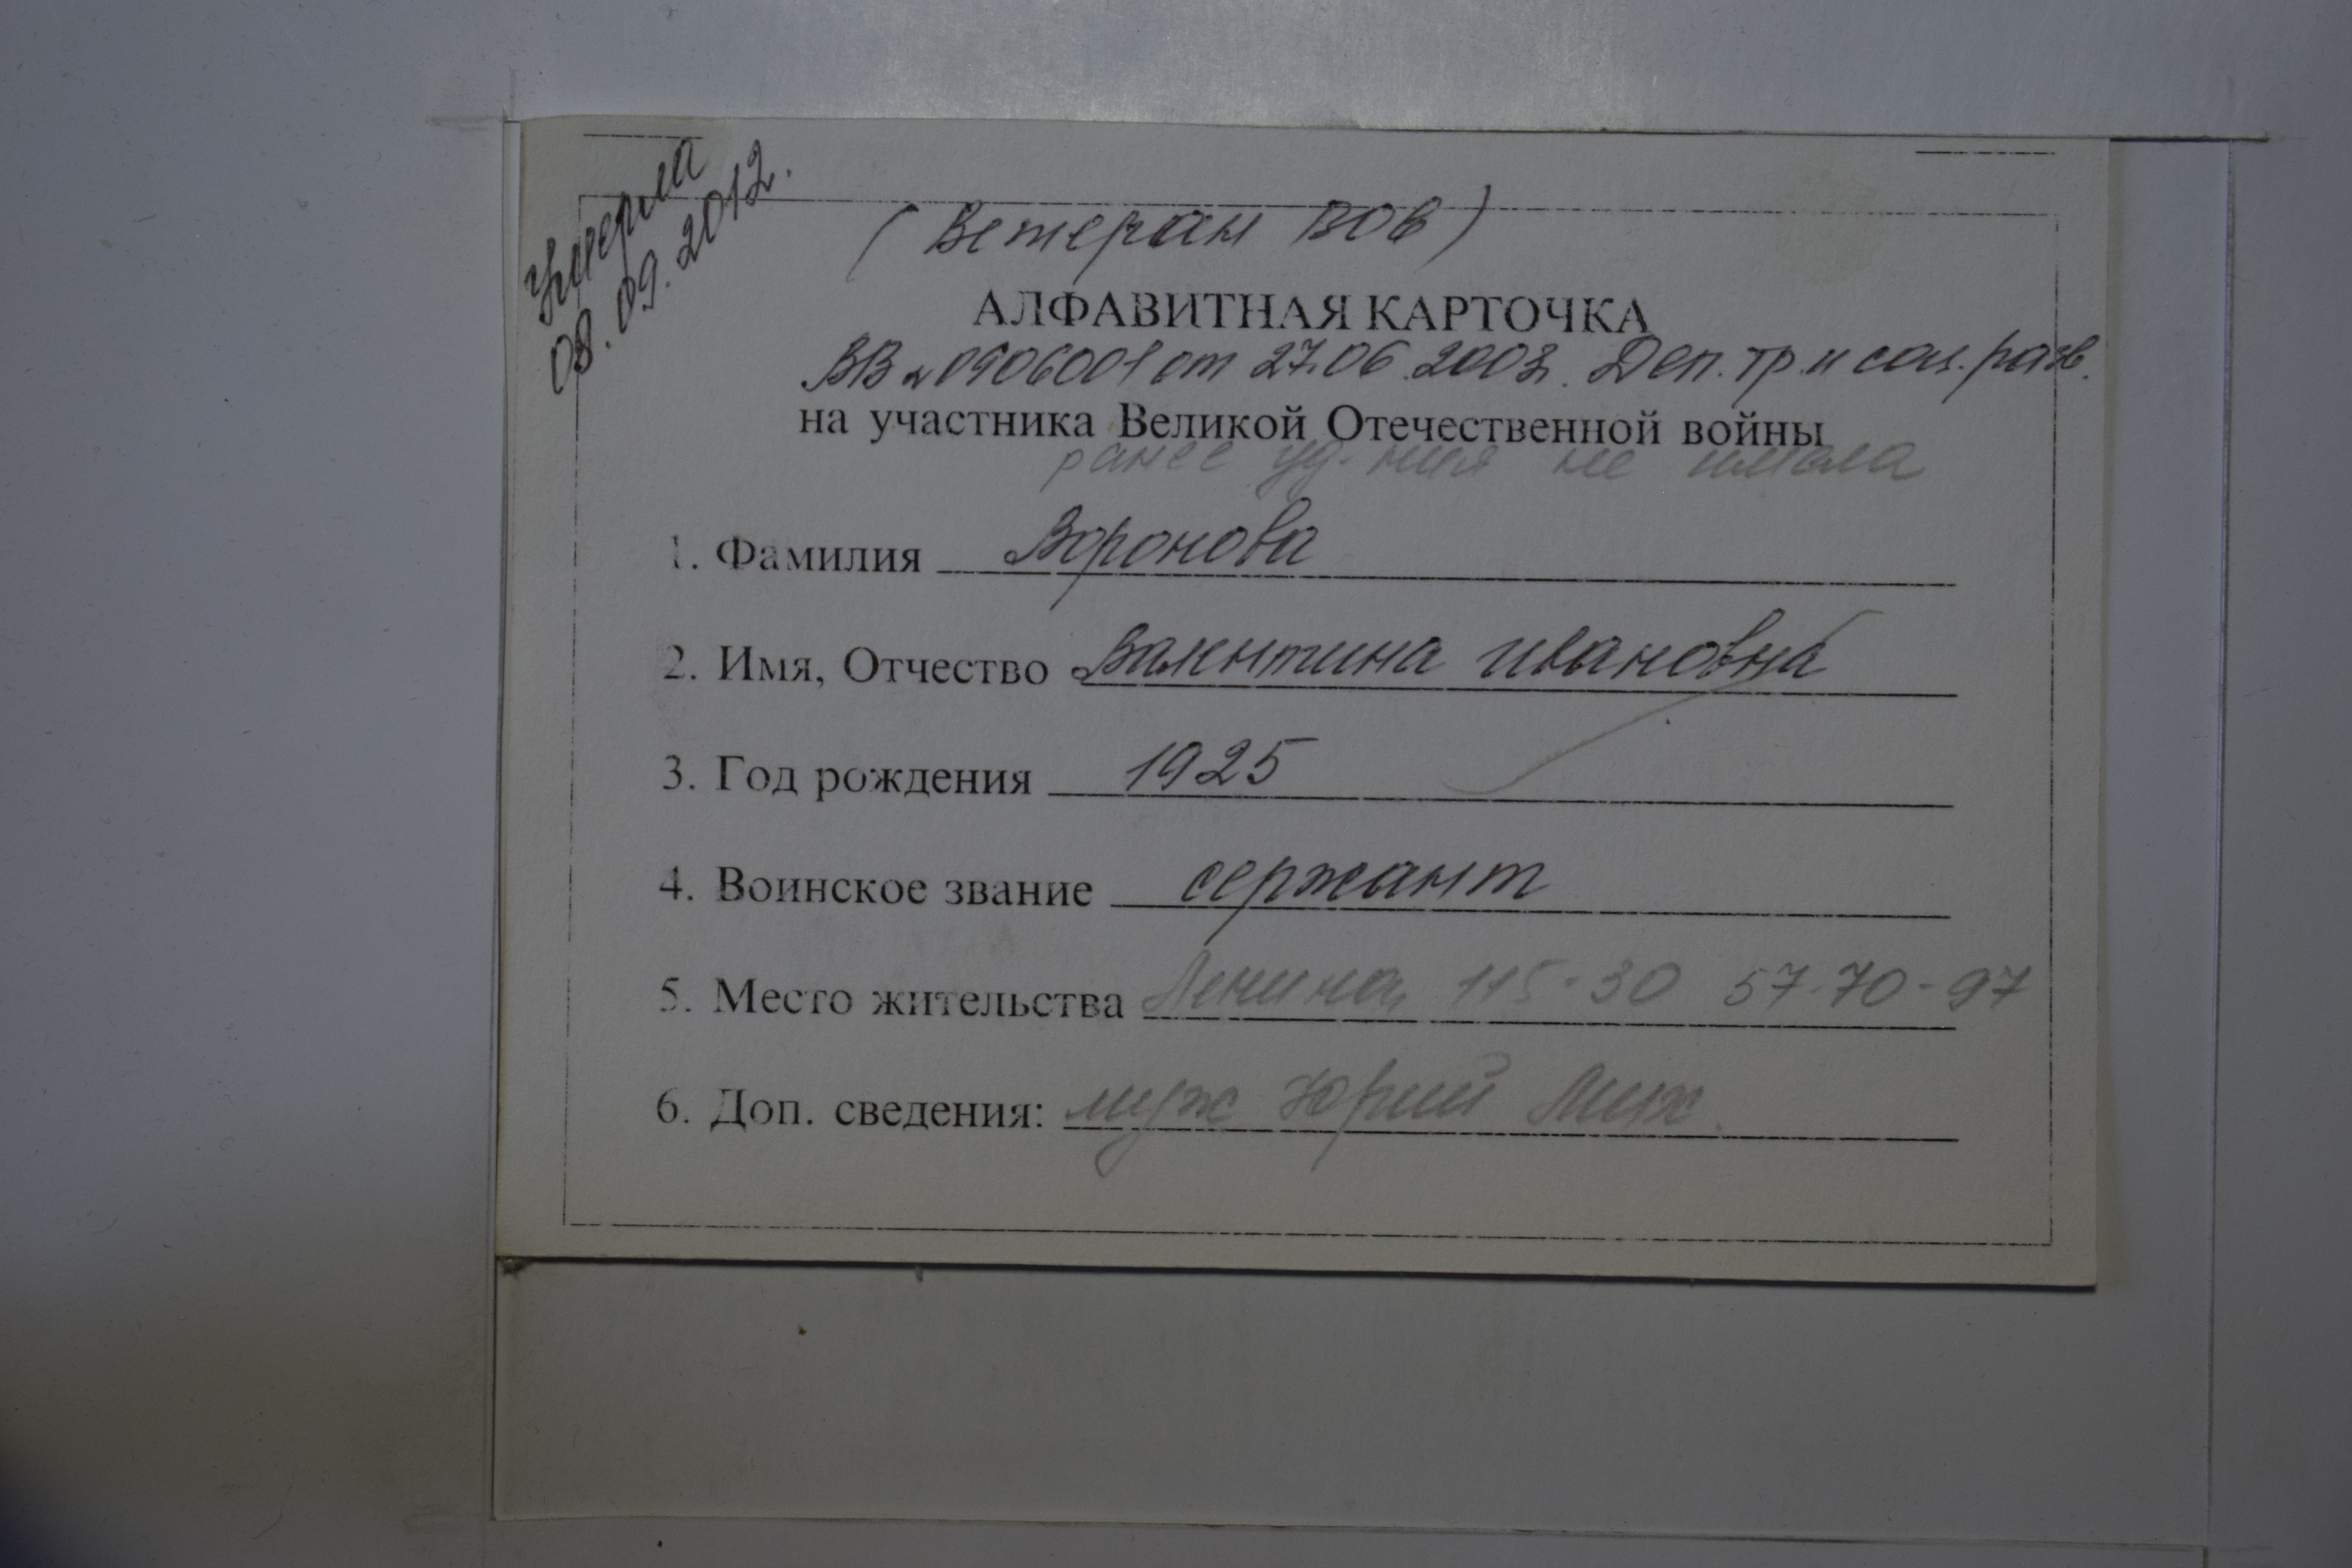 умерла
08.09.2012.
(Ветеран ВОВ)
АЛФАВИТНАЯ КАРТОЧКА
ВВ № 0906001 от 27.06.2003. Деп. тр. и соц. разв.
на участника Великой Отечественной войны
ранее уд-ния не имела
1. Фамилия Воронова
2. Имя, Отчество Валентина Ивановна
3. Год рождения 1925
4. Воинское звание сержант
5. Место жительства Ленина, 115-30 57-70-97
6. Доп. сведения: муж Юрий Мих.